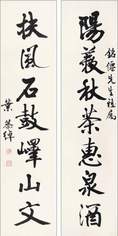 陽羨秋茶惠泉酒
銘傳先生屬
扶風石鼓嶧山文
葉恭綽